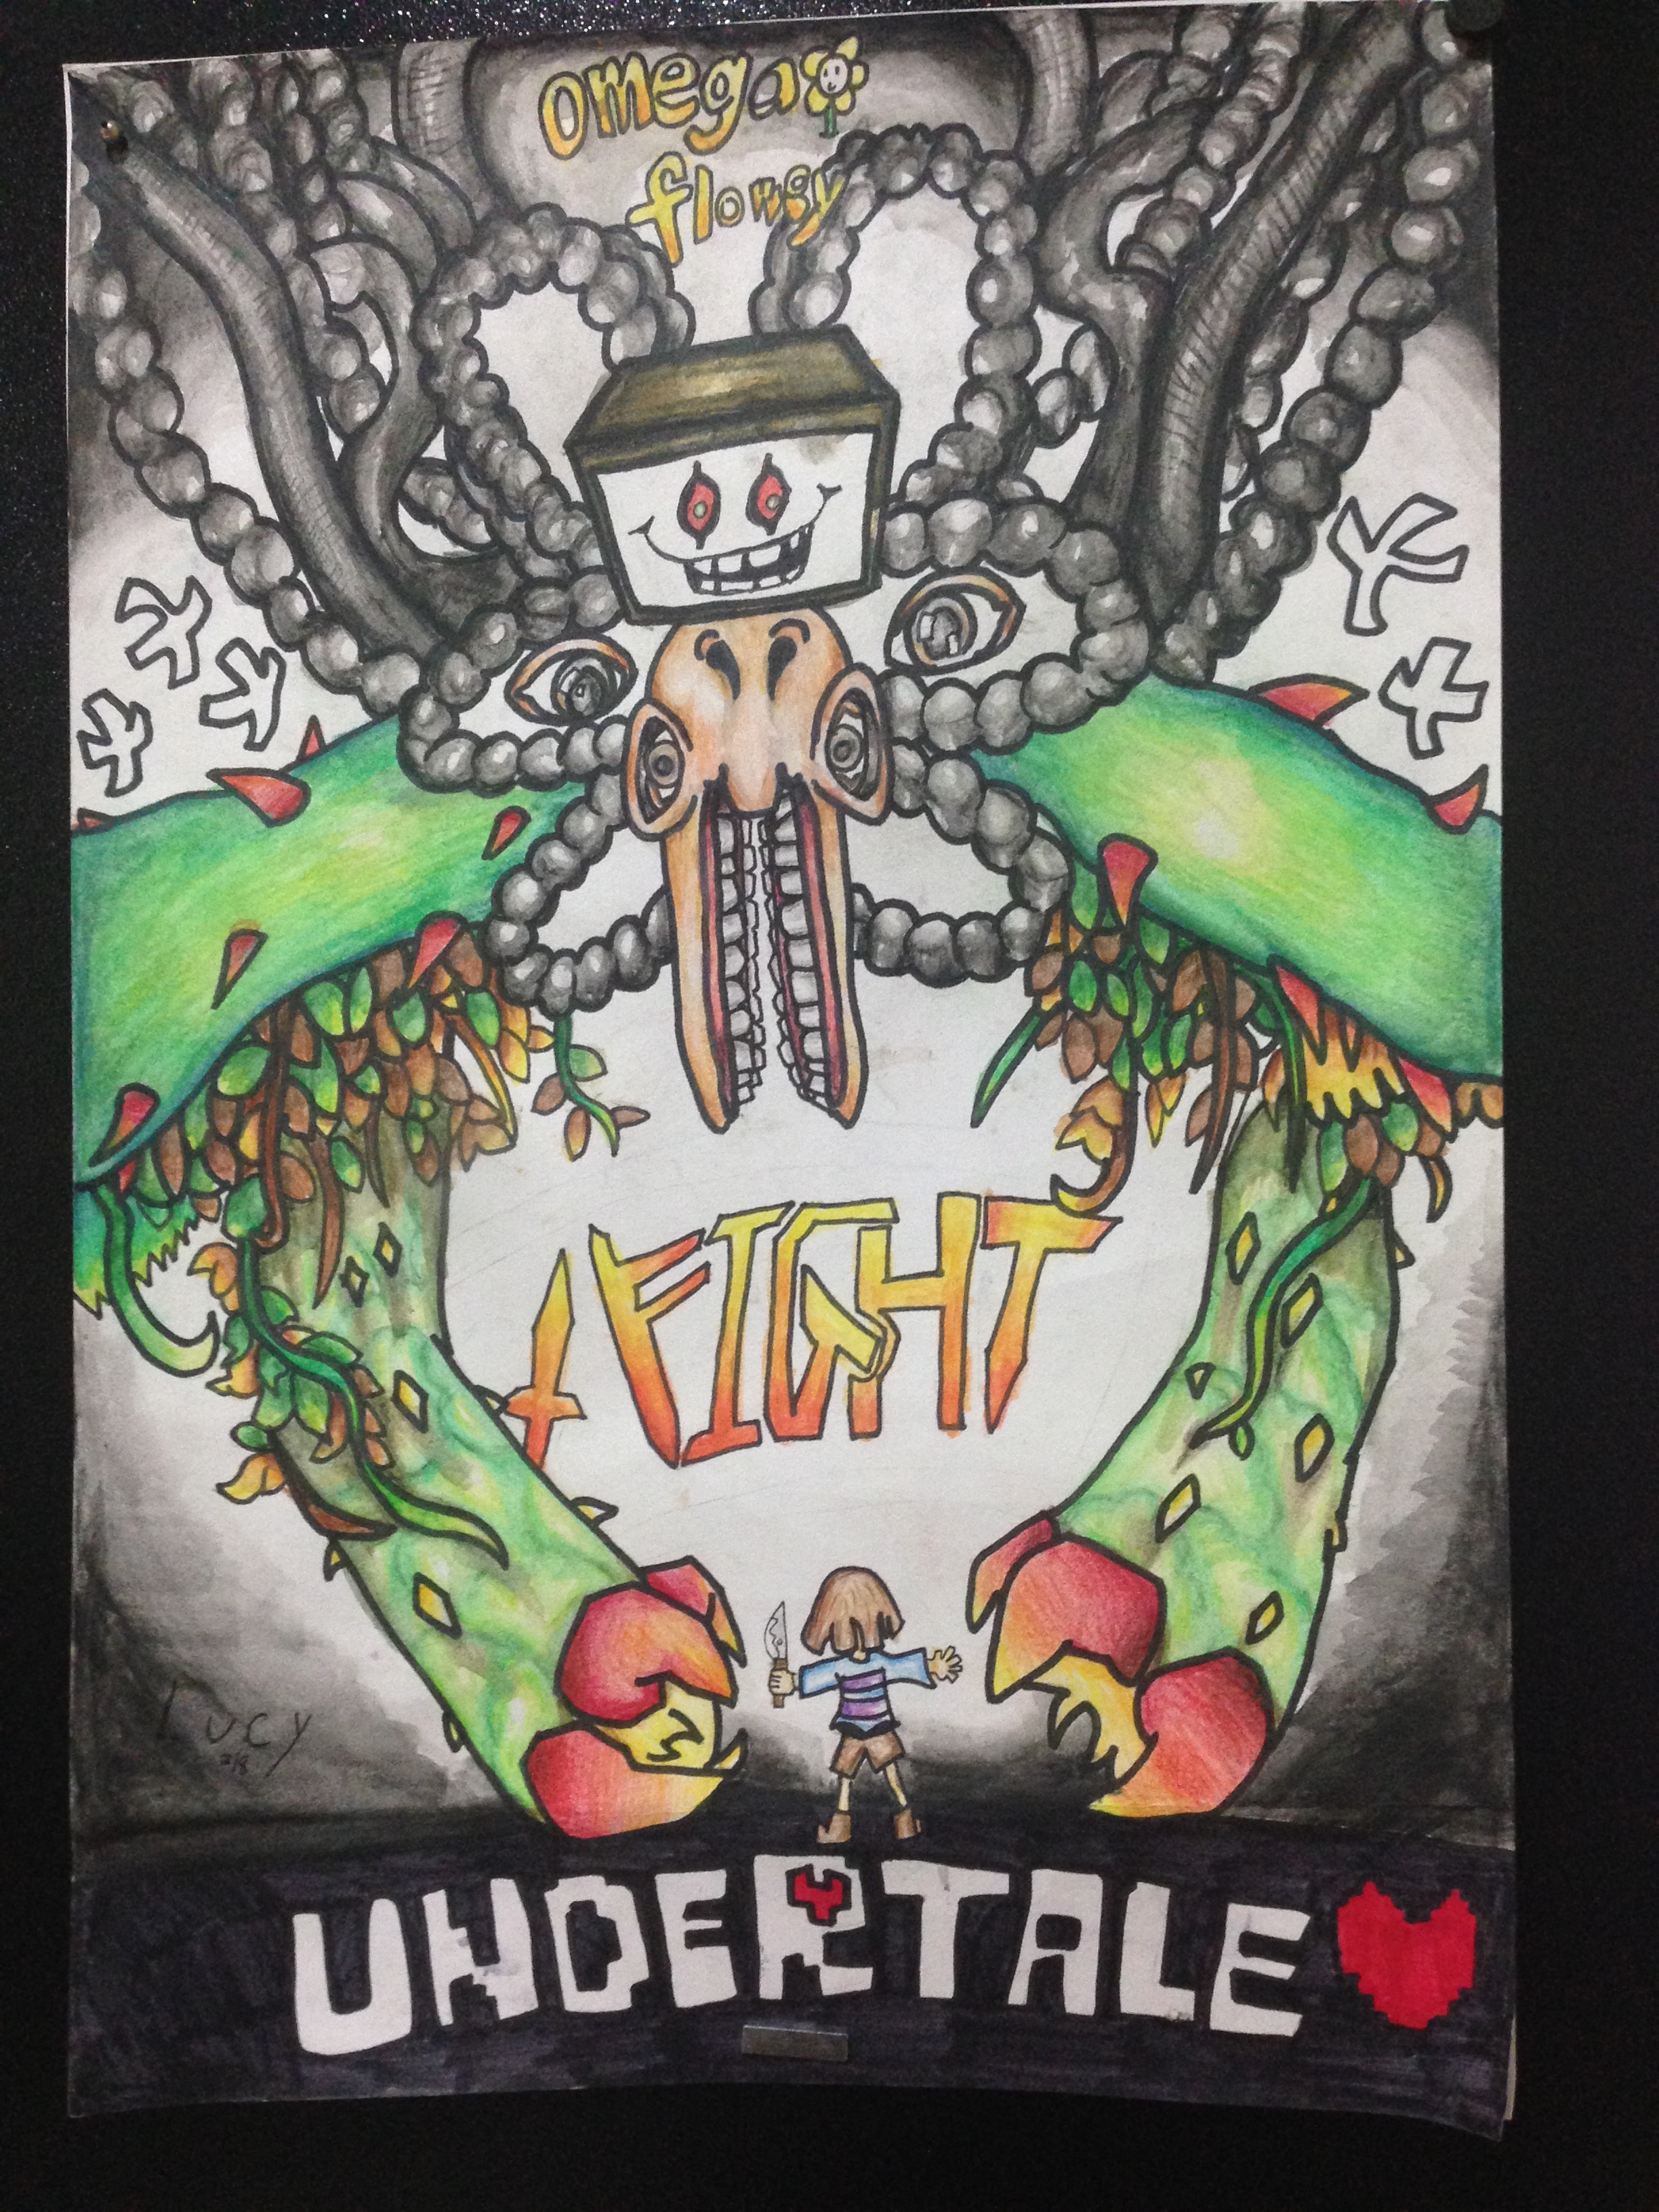 omega
flowey
FIGHT
Lucy
UNDERTALE